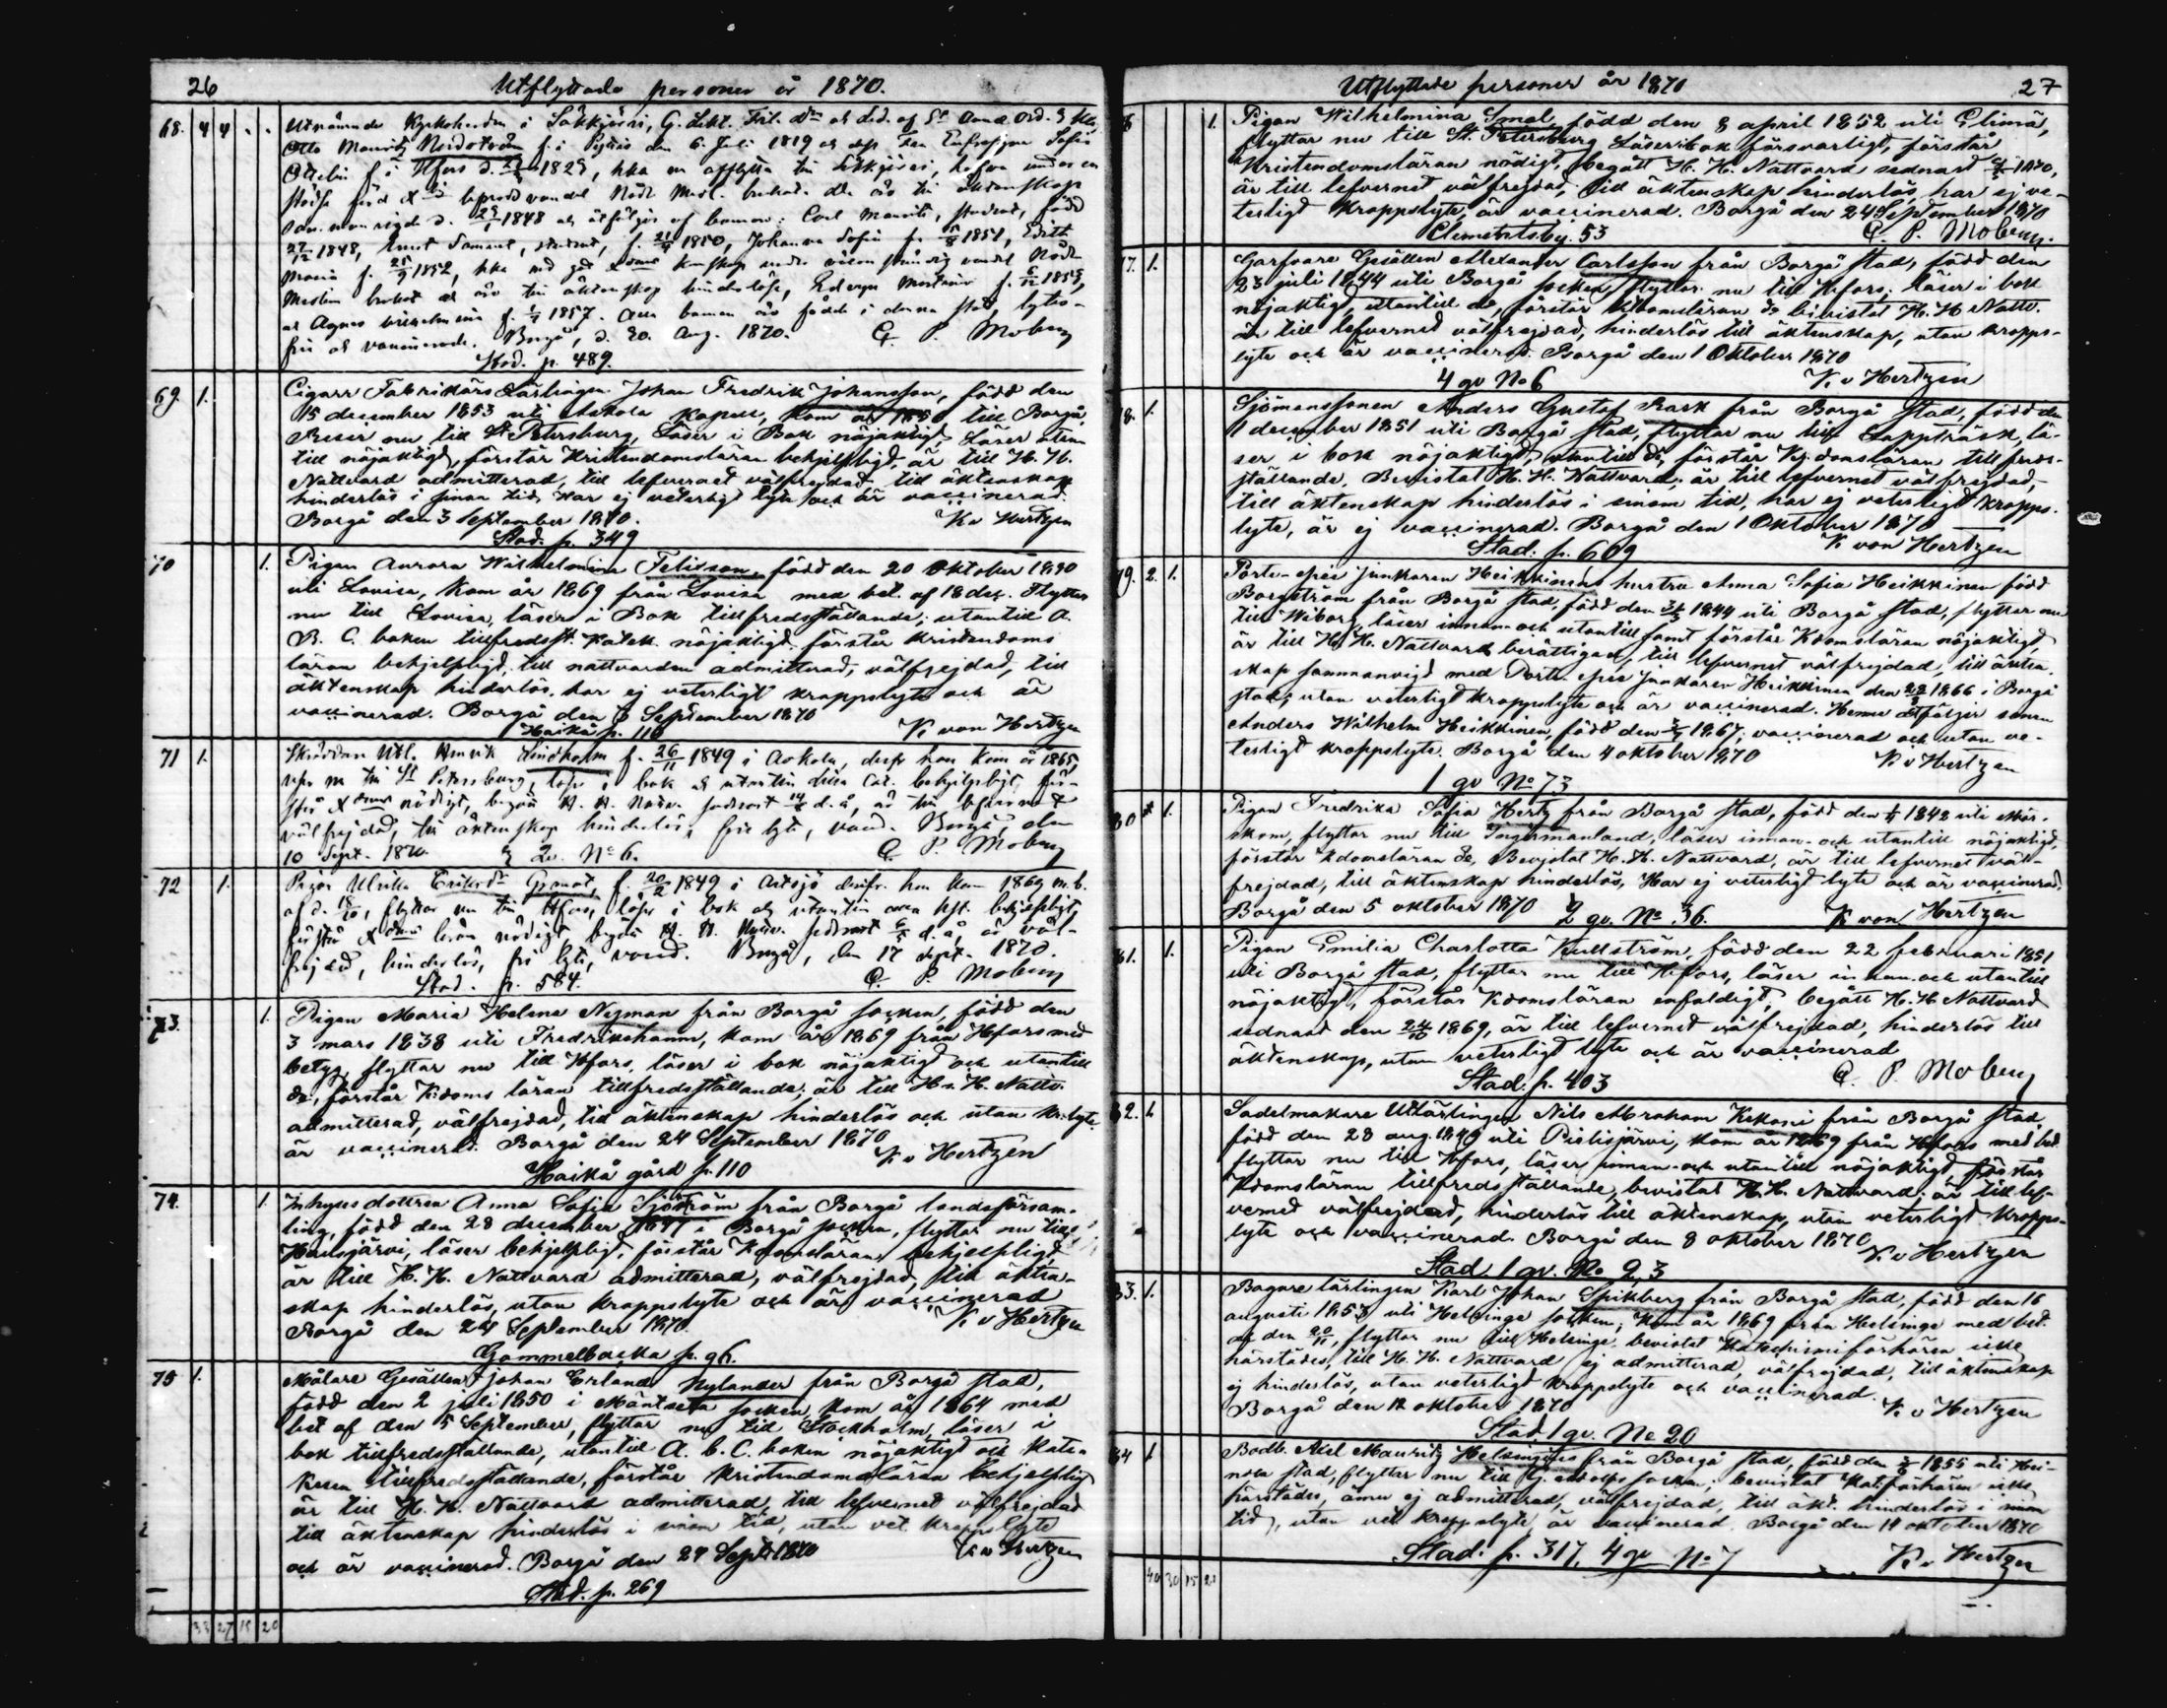 26
Utflyttade personer år 1870.
68. 4 4
Utnämnde Kyrkoherden i Säkkjärvi, G. Lekt. Fil. af St. Ord. 3 Kl.
Otto Mauritz Nordström f. i Pyttis den 6. Juli 1819
f. i Hfors d. 1825, hka nu afflytta till Säkkjärvi,
d. 1848 och åtföljas af barnen: Carl student, född
1848, student, f. 1850, Johanna Sofia f. 1851, Edith
Maria f. 1852,
brukat till äktenskap hinderlöse, f. 1855,
och Agnes Wilhelmina f. 1857. Alla barnen äro födde i denna stad, lytes-
frie och vaccinerade. Borgå, d. 20. Aug. 1870. C. P. Moberg
Stad. p. 489.
69. 1.
Cigarr Fabrikörs Lärlingen Johan Fredrik Johansson, född den
15 december 1853 uti Askola Kapell, kom år till Borgå,
Reser nu till St Petersburg, Läser i Bok nöjaktigt, Läser utan
till nöjaktigt, förstår Kristendomsläran behjelpligt, är till H. H.
Nattvard admitterad, till lefvernet välfrejdad, till äktenskap
hinderlös i sinom tid, har ej veterligt lyte och är vaccinerad.
Borgå den 3 September 1870. K v Hertzen
Stad. p. 349
70 1.
Pigan Aurora Wilhelmina Felixson, född den 20 Oktober
uti Lovisa, kom år 1869 från Lovisa med bet. af 18 dec. Flyttar
nu till Lovisa, läser i Bok tillfredsställande, utantill A.
B. C. boken tillfredst. Katek. nöjaktigt förstår Kristendoms
läran behjelpligt, till nattvarden admitterad, välfrejdad, till
äktenskap hinderlös, har ej veterligt kroppslyte och är
vaccinerad. Borgå den September 1870 K. von Hertzen
Haika p. 110
71 1.
Skräddare Utl. Henrik Lindholm f. 26/11 1849 i Askola, derfr. han kom år 1865,
reser nu till St Petersburg, läser i bok och utantill behjelpligt, för-
står nödigt, begått H. H. Nattv. sednast 14/ d. å, är till lefvernet
välfrejdad, till äktenskap hinderlös, fri lyte, vacc. Borgå, den
10 Sept. 1870. 2 qv. No 6. C. P. Moberg
72 1.
Pigan Ulrika Eriksdr f. 20/2 1849 i Artsjö derifr. hon kom 1869 m. b.
af d. 18/10, flyttar nu till Hfors, läser i bok och utantill behjelpligt,
förstår läran nödigt, begått H. H. Nattv. sednast d. å, är väl-
frejdad, hinderlös, fri lyte, vaccd. Borgå, den 17 sept. 1870.
Stad. p. 584. C. P. Moberg
73. 1.
Pigan Maria Helena Nyman från Borgå socken, född den
3 mars 1838 uti Fredrikshamn, kom år 1869 från Hfors med
betyg, flyttar nu till Hfors, läser i bok nöjaktigt och utantill
do, förstår Kdoms läran tillfredsställande, är till H. H. Nattv.
admitterad, välfrejdad, till äktenskap hinderlös och utan kr. lyte,
är vaccinerad. Borgå den 24 September 1870 K. v Hertzen
Haikå gård p. 110
74. 1.
Inhyses dottren Anna Sofia Sjöström från Borgå landsförsam-
ling, född den 28 december i Borgå socken, flyttar nu till
Hausjärvi, läser behjelpligt, förstår Kdomsläran behjelpligt,
är till H. H. Nattvard admitterad, välfrejdad, till äkten-
skap hinderlös, utan kroppslyte och är vaccinerad
Borgå den 24 September 1870. K. v Hertzen
Gammelbacka p. 96.
75 1.
Målare Gesällen Johan Erland Nylander från Borgå stad,
född den 2 juli 1850 i Mäntsälä socken, kom år 1864 med
bet af den 5 September, flyttar nu till Stockholm, läser i
bok tillfredsställande, utantill A. B. C. boken nöjaktigt och Kate-
kesen tillfredsställande, förstår Kristendomsläran behjelpligt
är till H. H. Nattvard admitterad, till lefvernet välfrejdad
till äktenskap hinderlös i sinom tid, utan vet. kroppslyte
och är vaccinerad. Borgå den 24 Sept 1870 K v Hertzen
Stad. p. 269
33 27 15 20
Utflyttade personer år 1870
27
1.
Pigan Wilhelmina Smal, född den 8 april 1852 uti Elimä,
flyttar nu till St. Petersburg Läser i bok försvarligt, förstår
Kristendomsläran nödigt, begått H. H. Nattvard sednast 1870,
är till lefvernet välfrejdad, till äktenskap hinderlös, har ej ve-
terligt kroppslyte, är vaccinerad. Borgå den 24 September 1870
Clemetsby. 53 C. P. Moberg.
77. 1.
Garfvare Gesällen Alexander Carlsson från Borgå stad, född den
23 juli 1844 uti Borgå socken, flyttar nu till Hfors, läser i bok
nöjaktigt, utantill do, förstår Kdomsläran do bevistat H. H. Nattv.
är till lefvernet välfrejdad, hinderlös till äktenskap, utan kropps-
lyte och är vaccinerad. Borgå den 1 Oktober 1870
4 qv No 6 K. v Hertzen
78. 1.
Sjömanssonen Anders Gustaf Rask från Borgå stad, född den
1 december 1851 uti Borgå stad, flyttar nu till Lappträsk, lä-
ser i bok nöjaktigt, utantill do, förstår Kr. domsläran tillfreds-
ställande, Bevistat H. H. Nattvard, är till lefvernet välfrejdad,
till äktenskap hinderlös i sinom tid, har ej veterligt kropps-
lyte, är ej vaccinerad. Borgå den 1 Oktober 1870
Stad. p. 609 K. von Hertzen
79. 2. 1.
Porte-epée Junkaren Heikkinens hustru Anna Sofia Heikkinen född
Borgström från Borgå stad, född den 1844 uti Borgå stad, flyttar nu
till Wiborg, läser innan- och utantill samt förstår Kdomsläran nöjaktigt,
är till H. H. Nattvard berättigad, till lefvernet välfrejdad, till äkten-
skap sammanvigd med Porte epée Junkaren Heikkinen den 1866 i Borgå
stad, utan veterligt kroppslyte och är vaccinerad. Henne åtföljer sonen
Anders Wilhelm Heikkinen, född den 1867, vaccinerad och utan ve-
terligt kroppslyte. Borgå den 4 oktober 1870 K. v Hertzen
1 qv No 73
80 1.
Pigan Fredrika Sofia Hertz från Borgå stad, född den 1842 uti Mör-
skom, flyttar nu till Ingermanland, läser innan- och utantill nöjaktigt,
förstår Kdomsläran do, Bevistat H. H. Nattvard, är till lefvernet väl-
frejdad, till äktenskap hinderlös, Har ej veterligt lyte och är vaccinerad.
Borgå den 5 oktober 1870 2 qv. No 36. K von Hertzen
81. 1.
Pigan Emilia Charlotta Kullström, född den 22 februari 1851
uti Borgå stad, flyttar nu till Hfors, läser innan- och utantill
nöjaktigt, förstår Kdomsläran enfaldigt, begått H. H. Nattvard
sednast den 24/10 1869, är till lefvernet välfrejdad, hinderlös till
äktenskap, utan veterligt lyte och är vaccinerad
Stad. p. 403 C. P. Moberg
82. 1.
Sadelmakare Utlärlingen Nils Abraham Kekoni från Borgå stad
född den 28 aug. uti Pielisjärvi, kom år 1869 från Hfors med bet.
flyttar nu till Hfors, läser innan- och utantill nöjaktigt, förstår
Kdomsläran tillfredsställande, bevistat H. H. Nattvard, är till lef-
vernet välfrejdad, hinderlös till äktenskap, utan veterligt kropps-
lyte och vaccinerad. Borgå den 8 oktober 1870 K. v Hertzen
Stad. 1 qv. No 23
83. 1.
Bagare lärlingen Karl Johan Spikberg från Borgå stad, född den 16
augusti 1853 uti Helsinge socken, kom år 1869 från Helsinge med bet.
af den, flyttar nu till Helsinge, bevistat Katechismiförhören icke
härstädes, till H. H. Nattvard ej admitterad, välfrejdad, till äktenskap
ej hinderlös, utan veterligt kroppslyte och vaccinerad.
Borgå den 12 oktober 1870 K. v Hertzen
Stad. 1 qv. No 20
84 1
Bodb. Axel Mauritz Helsingius från Borgå stad, född den 1855 uti Hei-
nola stad, flyttar nu till socken, bevistat Kat. förhören icke
härstädes, ännu ej admitterad, välfrejdad, till äkt. hinderlös i sinom
tid, utan vet. kroppslyte, är vaccinerad. Borgå den 14 oktober 1870
Stad: p. 317. 4 qv No 7 K. v Hertzen
40 30 15 21